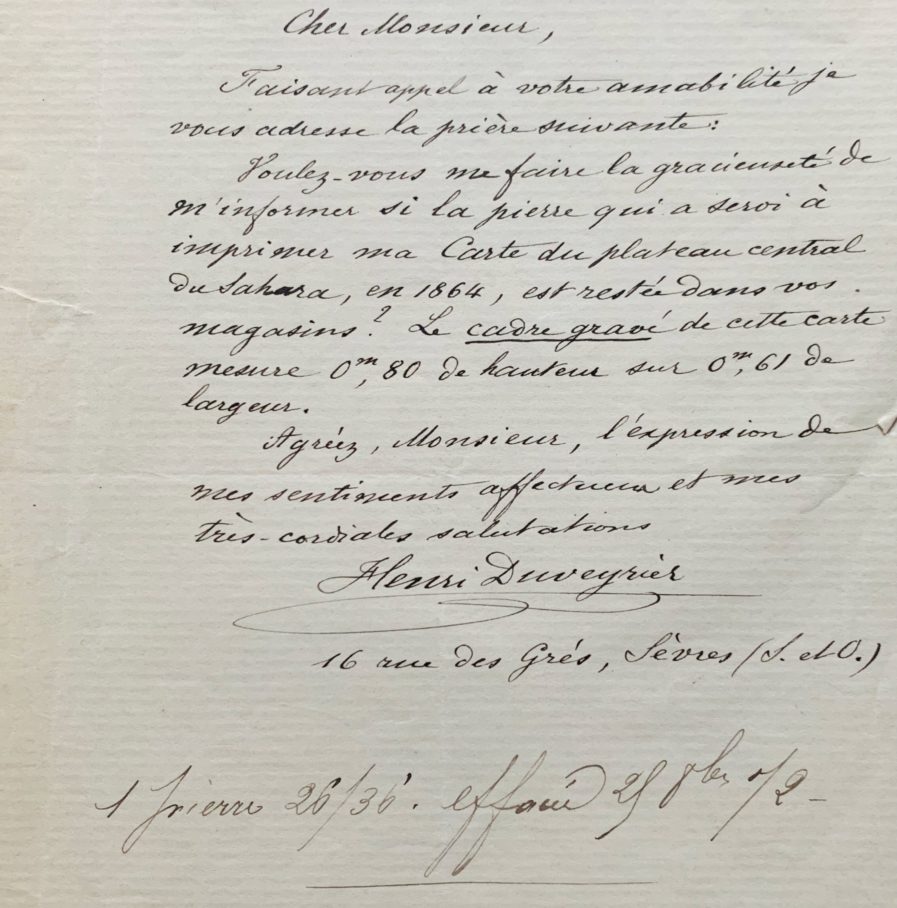 Cher Monsieur,
Faisant appel à votre amabilité je
vous adresse la prière suivante:
Voulez-vous me faire la gracieuseté de
m'informer si la pierre qui a servi à
imprimer ma Carte du plateau central
du Sahara, en 1864, est restée dans vos
magasins? Le cadre gravé de cette carte
mesure 0m,80 de hauteur sur 0m,61 de
largeur.
Agréez, Monsieur, l'expression de
mes sentiments affectueux et mes
très-cordiales salutations
Henri Duveyrier
16 rue des Grés, Sèvres (S. et O.)
1 pierre 26/36. effacé 8bre 72